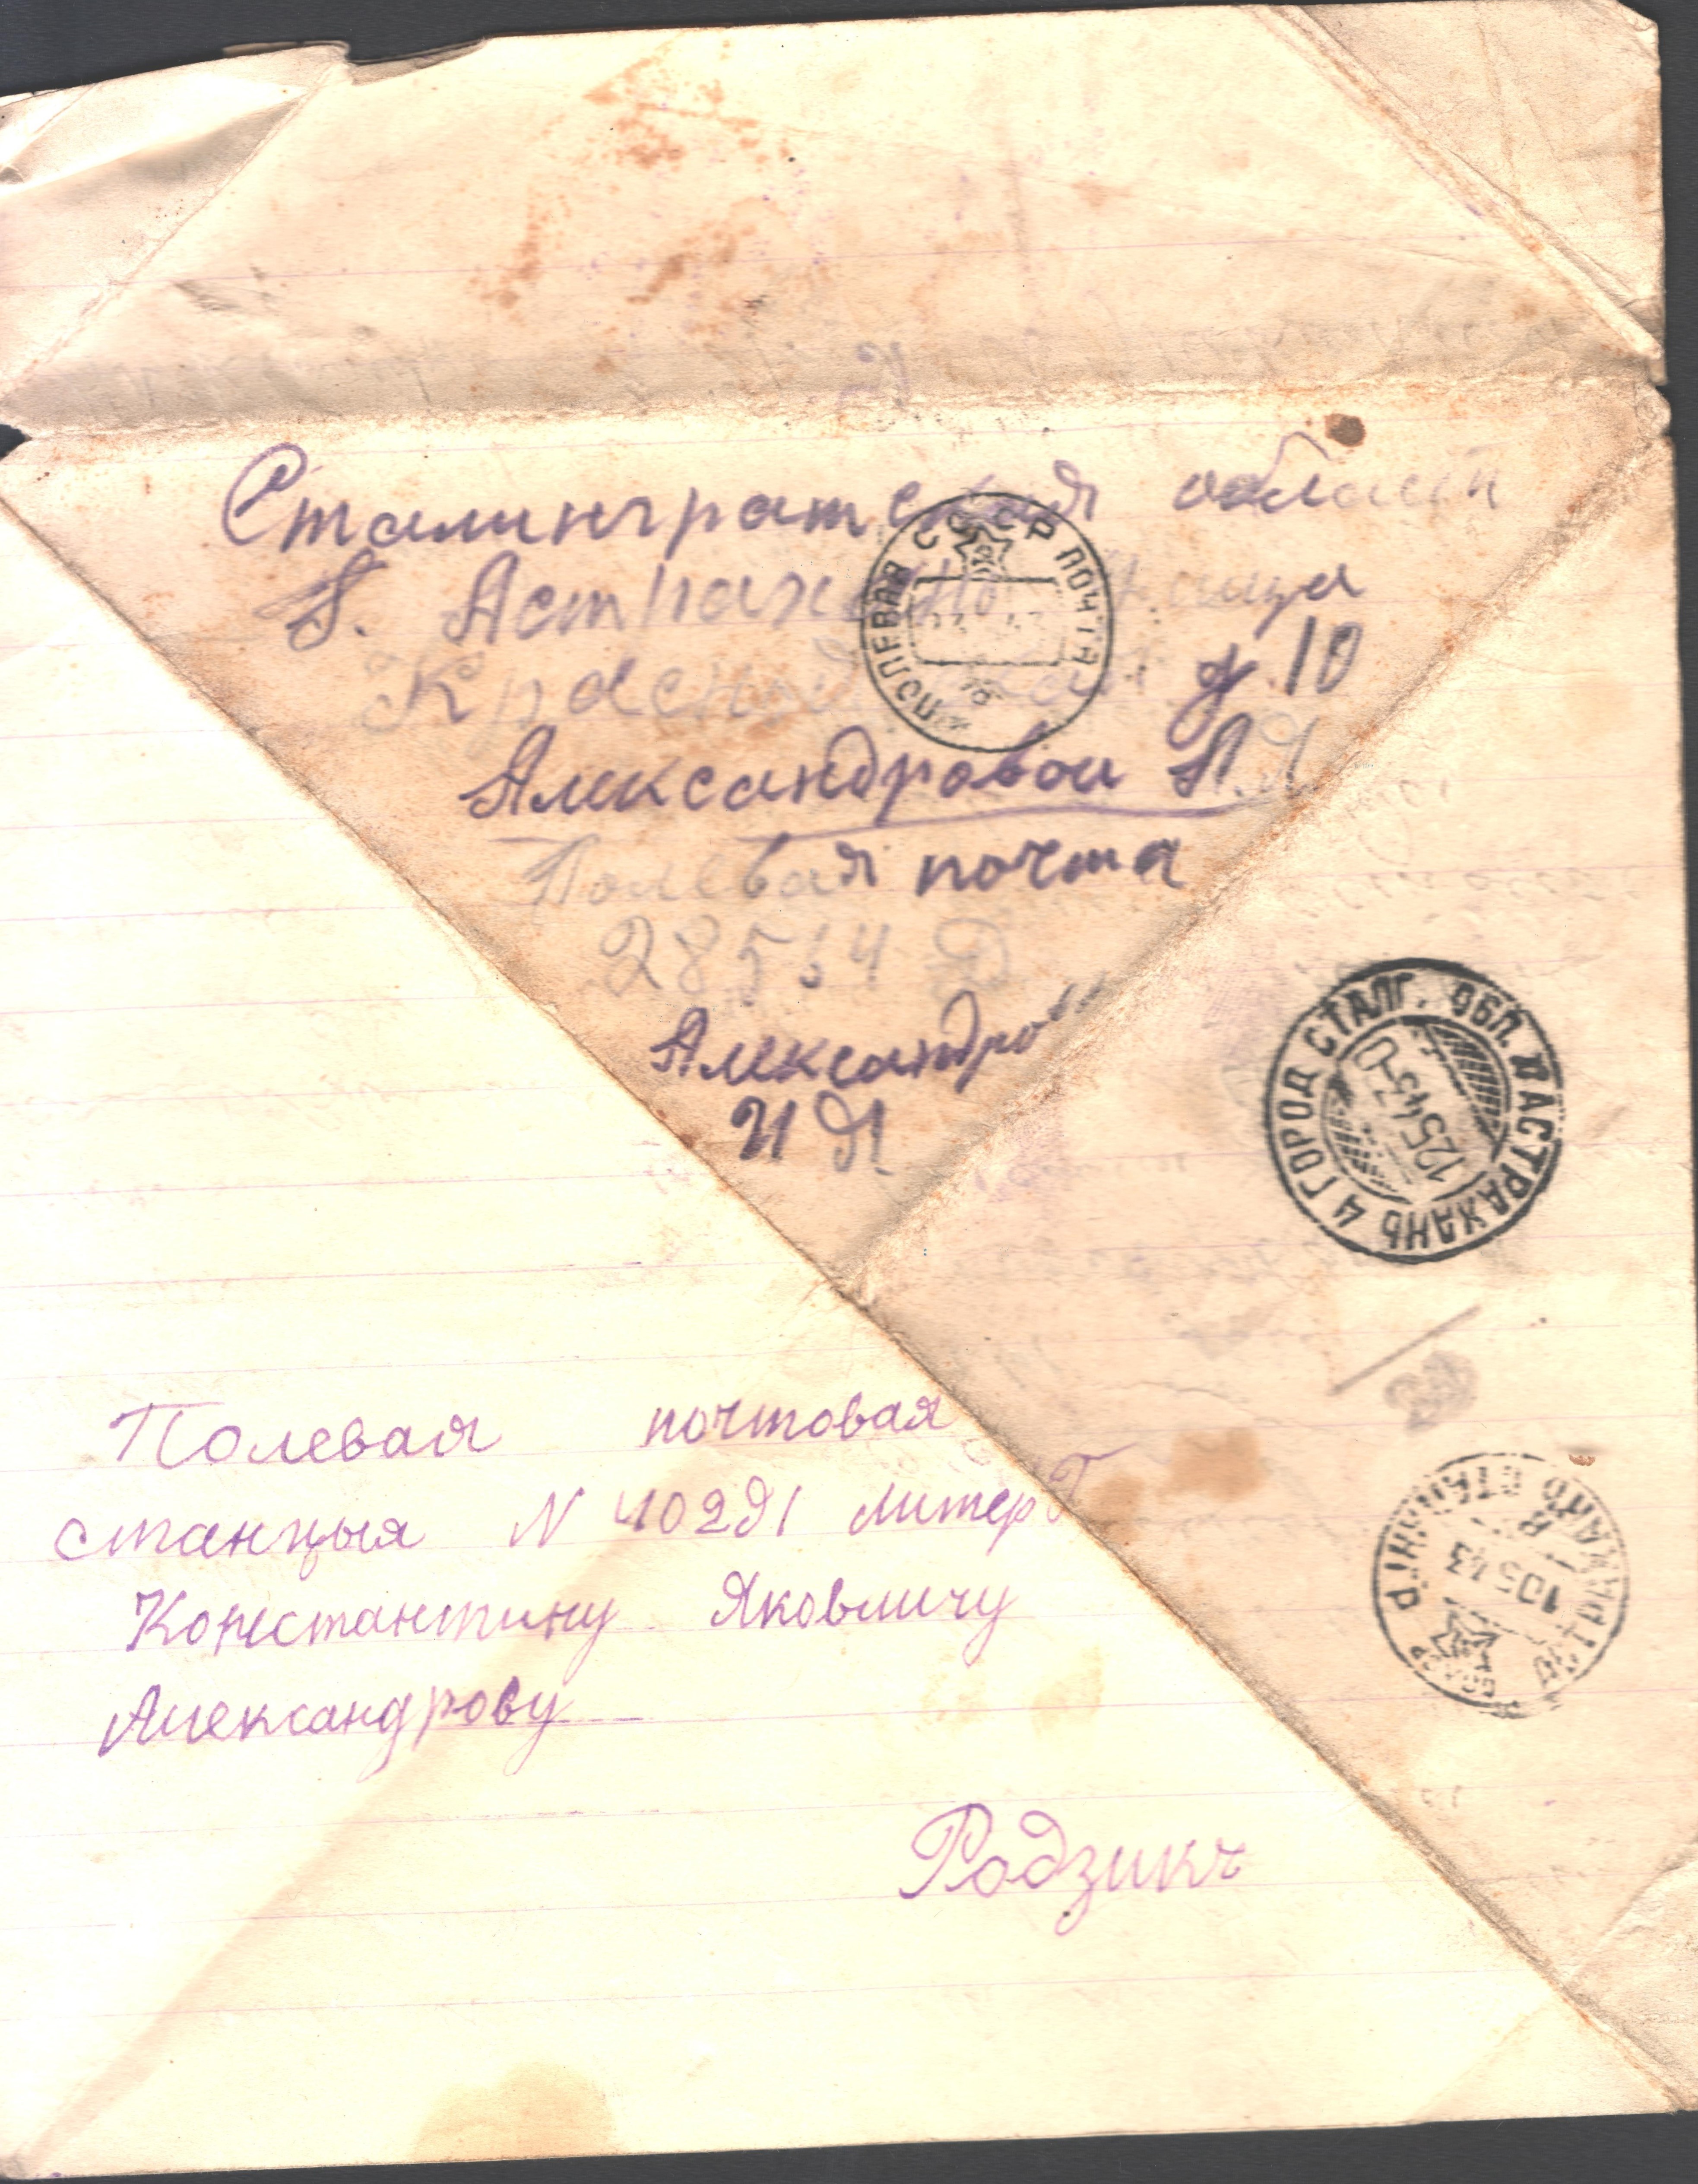 Сталингратская области
г. Астрахань улица
Красной д 10
Александровой А.Я
Полевая почта
28564 Д
Александров
И Я.
СССР
ПОЛЕВАЯ ПОЧТА
ГОРОД СТАЛГ. ОБЛ. АСТРАХАНЬ 4
12 5 43
10 5 43
Полевая почтовая
станцыя N 40291 литер Г
Константину Яковличу
Александрову
Родзикч